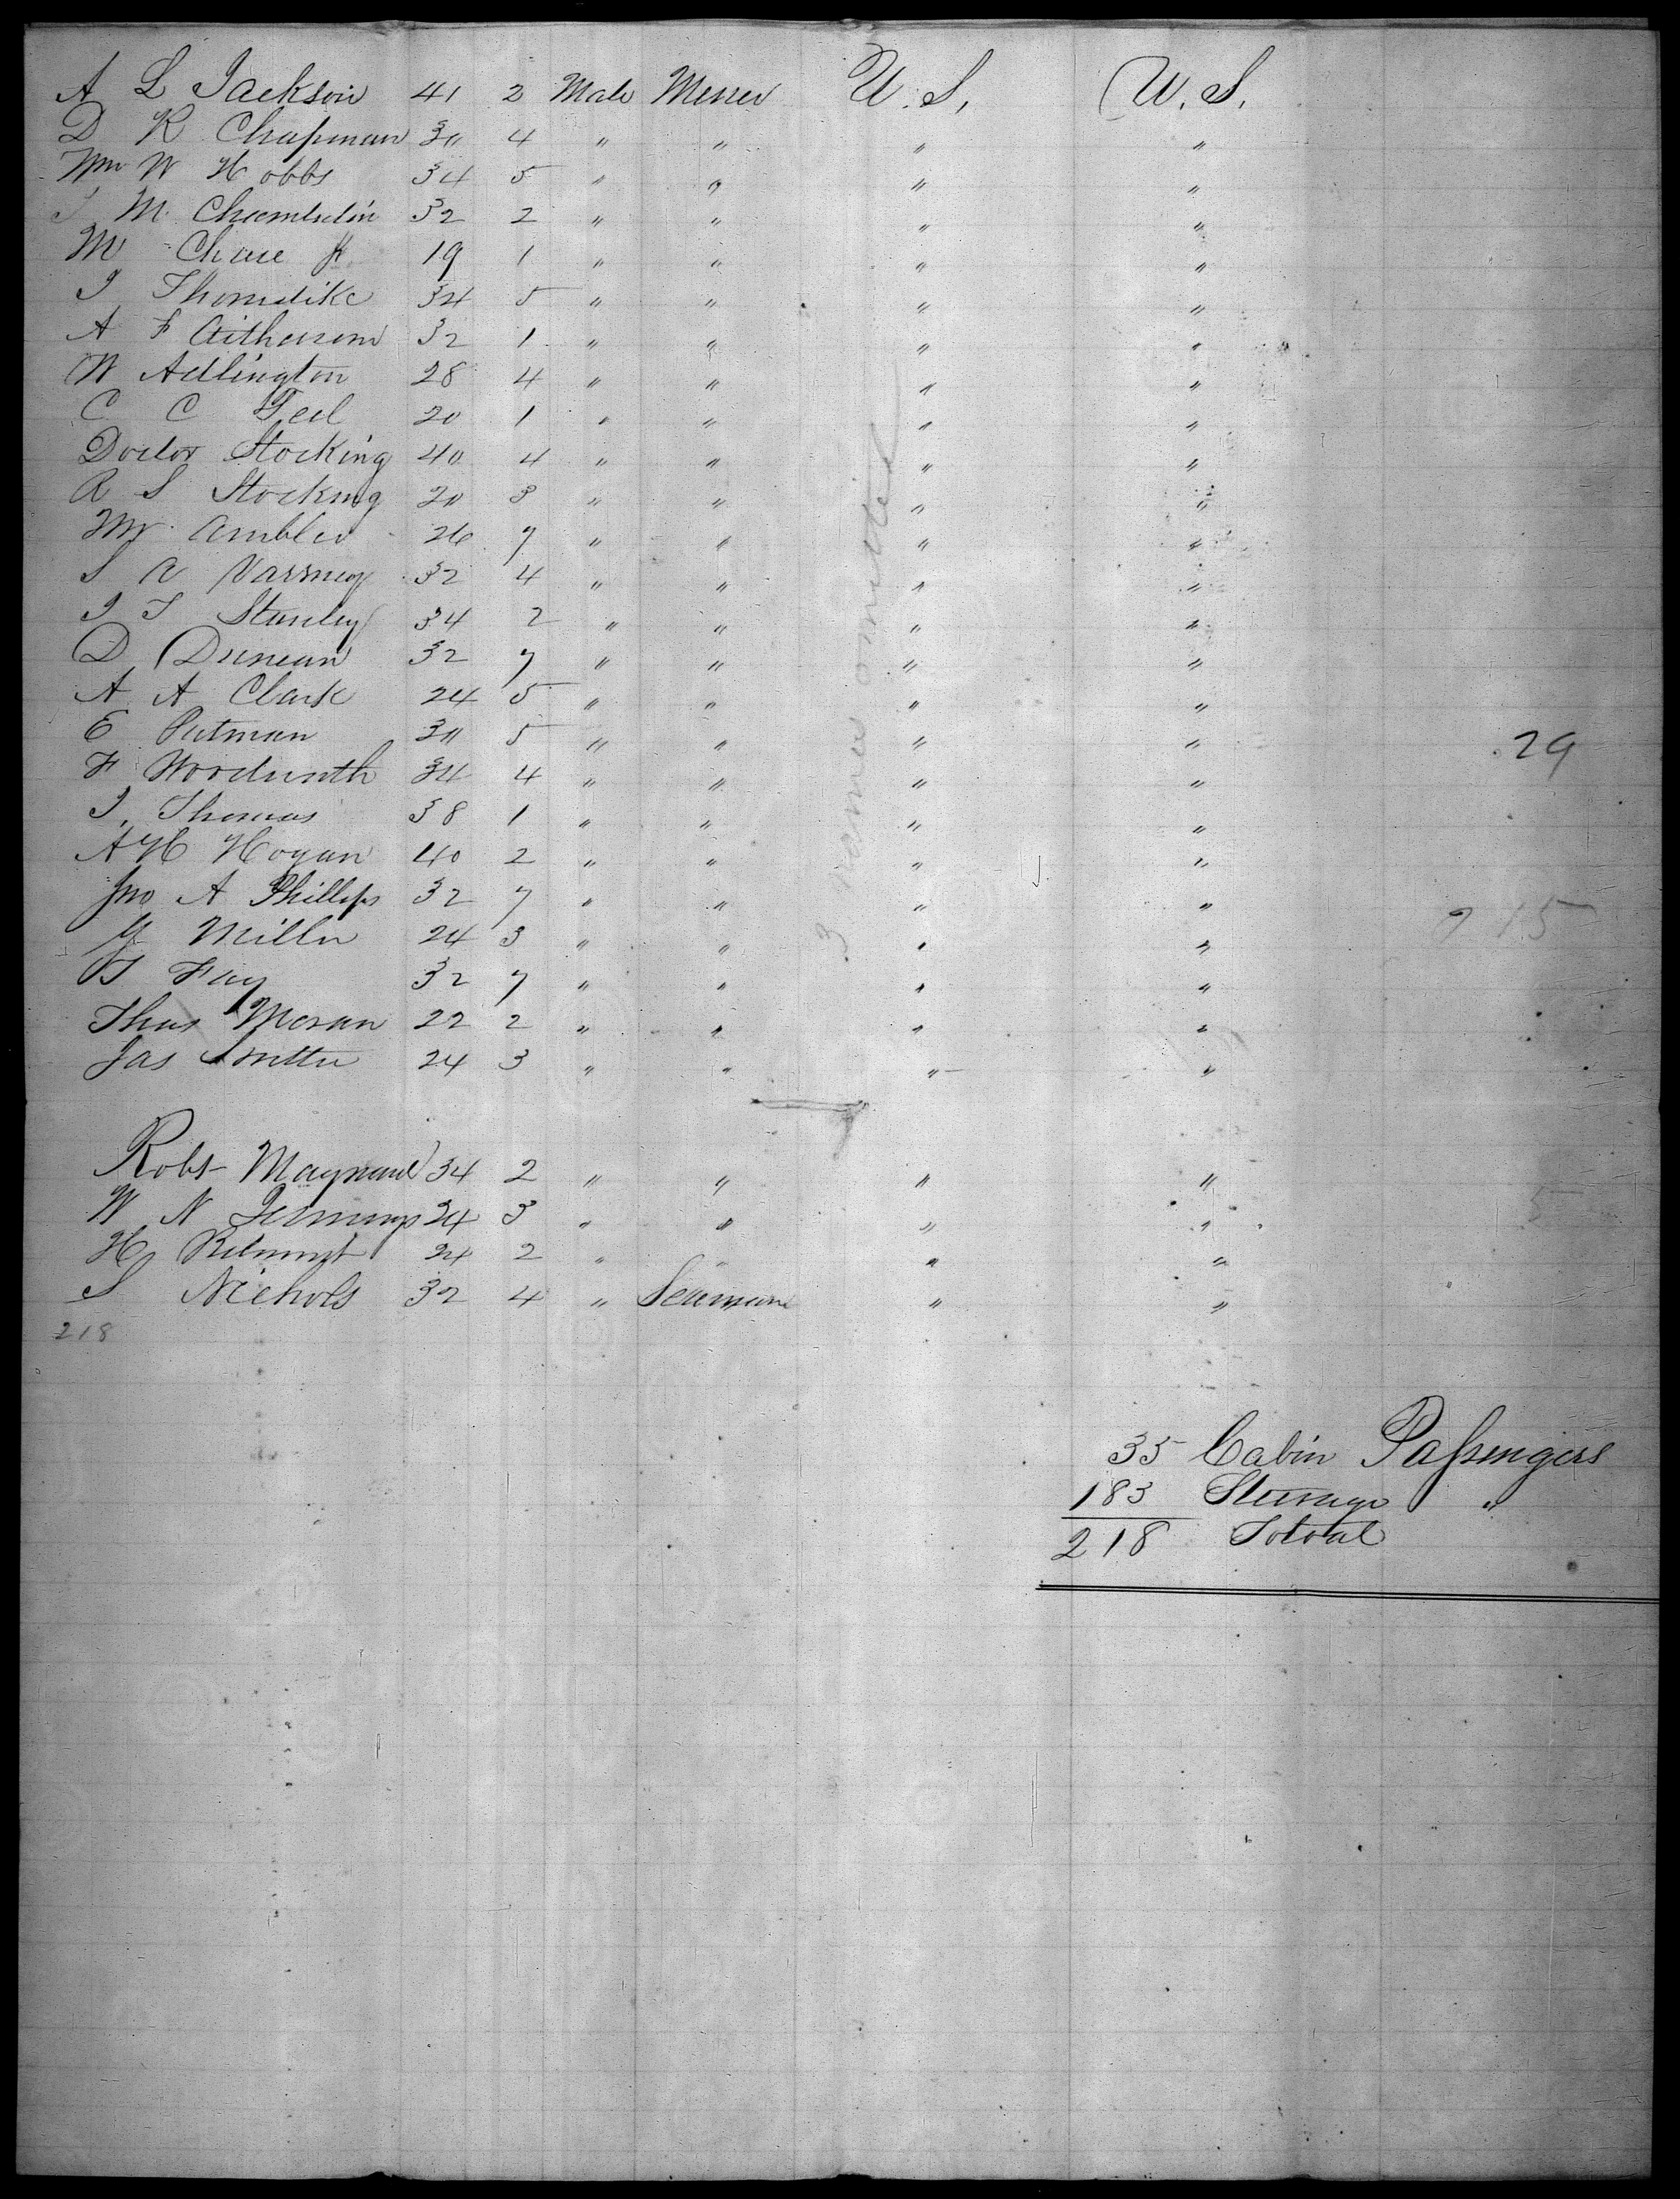 A L Jackson 41 2 Male Miner U. S. U. S.
D K Chapman 30 4 " " " "
Wm W Hobbs 34 5 " " " "
M. Chamberlin 32 2 " " " "
M Chase Jr 19 1 " " " "
J Thorndike 34 5 " " " "
A F 32 1 " " " "
W Adlington 28 4 " " " "
C C Teel 20 1 " " " "
Doctor Stocking 40 4 " " " "
R S Stocking 20 3 " " " "
Mr Ambler 26 7 " " " "
S A Varney 32 4 " " " "
J T Stanley 34 2 " " " "
D Duncan 32 7 " " " "
A A Clark 24 5 " " " "
E Putman 30 5 " " " " 29
F 34 4 " " " "
J. Thomas 38 1 " " " "
A H Hogan 40 2 " " " "
Jno A Phillips 32 7 " " " " 15
Miller 24 3 " " " "
T Fay 32 7 " " " "
Thos Moran 22 2 " " " "
Jas 24 3 " " " "
3 names ommitted
Robt Maynard 34 2 " " " "
W N Jennings 24 3 " " " " 5
H 24 2 " " " "
S Nichols 32 4 " Seaman " "
218
35 Cabin Passengers
183 Steerage "
218 Totoal